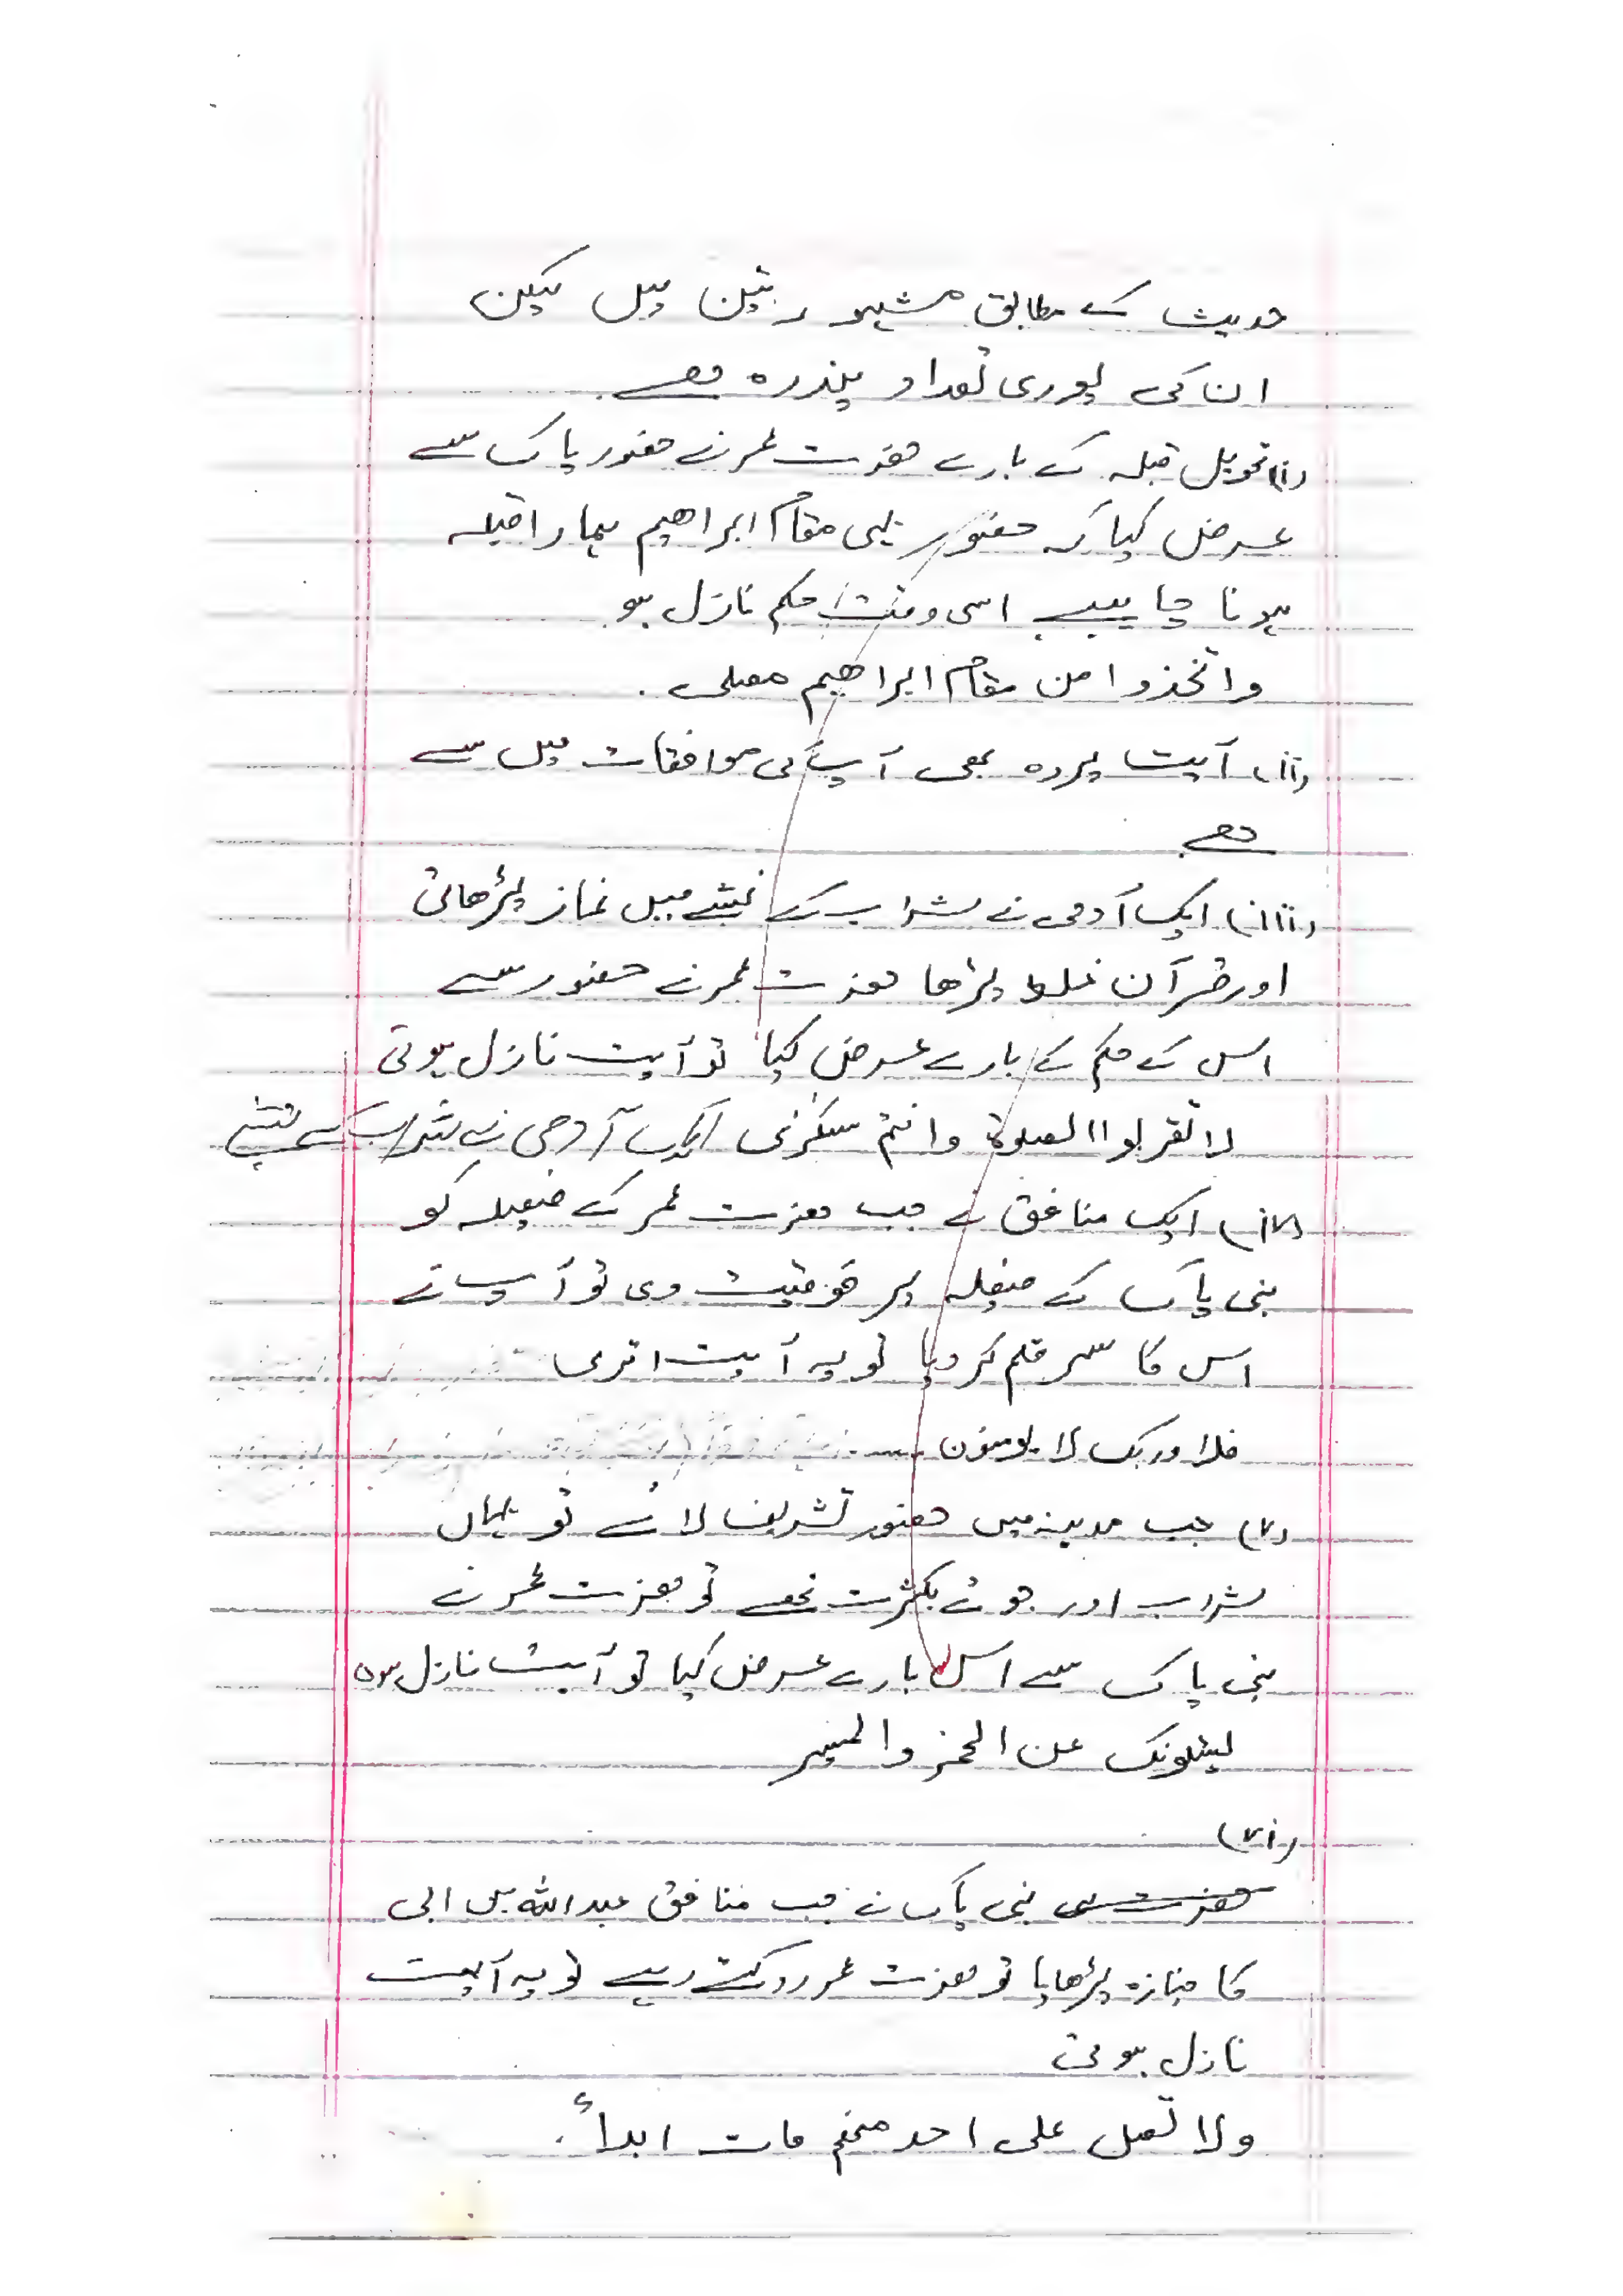 حدیث کے مطابق مشہور تین ہیں لیکن
ان کی پوری تعداد پندرہ ھے
(i) تحویل قبلہ کے بارے حضرت عمر نے حضور پاک سے
عرض کیا کہ حضور یہی مقام ابراھیم ہمارا قبلہ
ہونا چاہیے اسی وقت حکم نازل ہو
واتخذوا من مقام ابراھیم مصلی .
(ii) آیت پردہ بھی آپ کی موافقات میں سے
ھے
(iii) ایک آدمی نے شراب کے نشے میں نماز پڑھائی
اور قرآن غلط پڑھا حضرت عمر نے حضور سے
اس کے حکم کے بارے عرض کیا تو آیت نازل ہوئی
لا تقربوا الصلوۃ وانتم سکرٰی ایک آدمی نے شراب کے نشے
(iv) ایک منافق نے جب حضرت عمر کے فیصلہ کو
نبی پاک کے فیصلہ پر فوقیت دی تو آپ نے
اس کا سر قلم کر دیا تو یہ آیت اتری
فلا وربک لا یومنون
(v) جب مدینہ میں حضور تشریف لائے تو یہاں
شراب اور جوئے بکثرت تھے تو حضرت عمر نے
نبی پاک سے اس بارے عرض کیا تو آیت نازل ہوئی
یسئلونک عن الخمر والمیسر
(vi)
حضرت نبی پاک نے جب منافق عبداللہ بن ابی
کا جنازہ پڑھایا تو حضرت عمر روکتے رہے تو یہ آیت
نازل ہوئی
ولا تصل علی احد منھم مات ابداً .